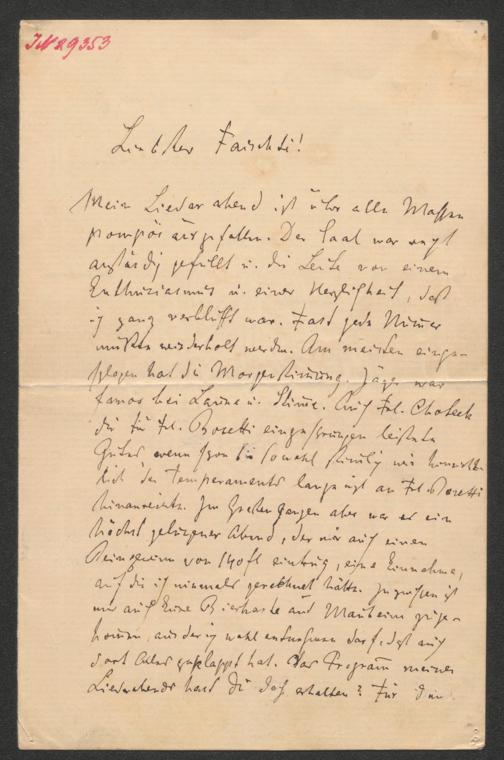 JN 29353
Liebster Faischti!
Mein Liederabend ist über alle Massen
pompös ausgefallen. Der Saal war recht
anständig gefüllt u. die Leute von einem
Enthusiasmus u. einer Herzlichkeit, dass
ich ganz verblüfft war. Fast jede Numer
mussten wiederholt werden. Am meisten einge-
schlagen hat die Morgenstimmung. Jäger war
famos bei Laune u. Stimme. Auch Frl. Chotek
die für Frl. Bosetti eingesprungen leistete
Gutes wenn schon sie sowohl stimlich wie
des Temperaments lange nicht an Frl. Bosetti
hinanreichte. Im Großen Ganzen aber war es ein
höchst gelungener Abend, der mir auch einen
Reingewinn von 140 fl eintrug, eine Einnahme,
auf die ich niemals gerechnet hätte. Inzwischen ist
mir auch Eure Bierkarte aus Manheim zuge-
kommen, aus der ich wohl entnehmen darf, dass auch
dort Alles geklappt hat. Das Programm meines
Liederabends hast Du doch erhalten? Für den